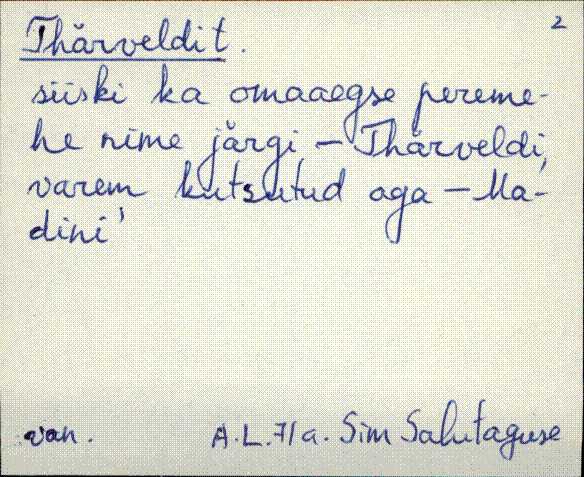 2
Thärveldit.
siiski ka omaaegse pereme-
he nime järgi – Thärveldi,
varem kutsutud aga – Ma-
dini'
van. A.L. 71a. Sim Salutaguse